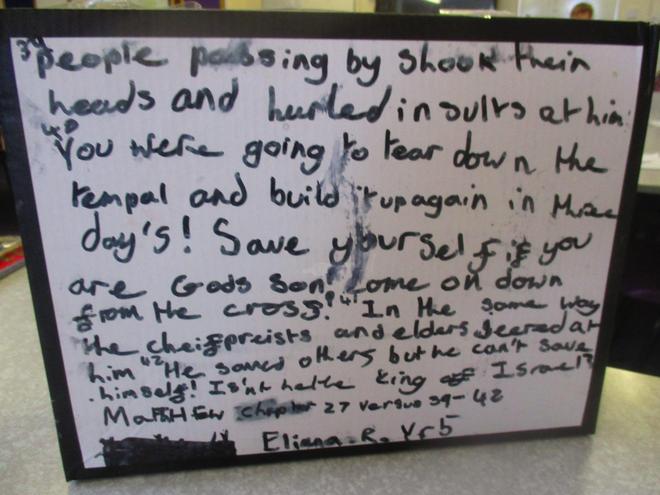 39 people passing by shook their
heads and hurled insults at him
40 You were going to tear down the
tempal and build it up again in three
day's! Save yourself if you
are Gods Son! come on down
from the cross!" 41 In the same way
the cheif preists and elders jeered at
him 42 "He saved others but he can't save
himself! Is'nt he the king of Israel?
MattHew chapter 27 versus 39-42
Eliana.R. Yr5